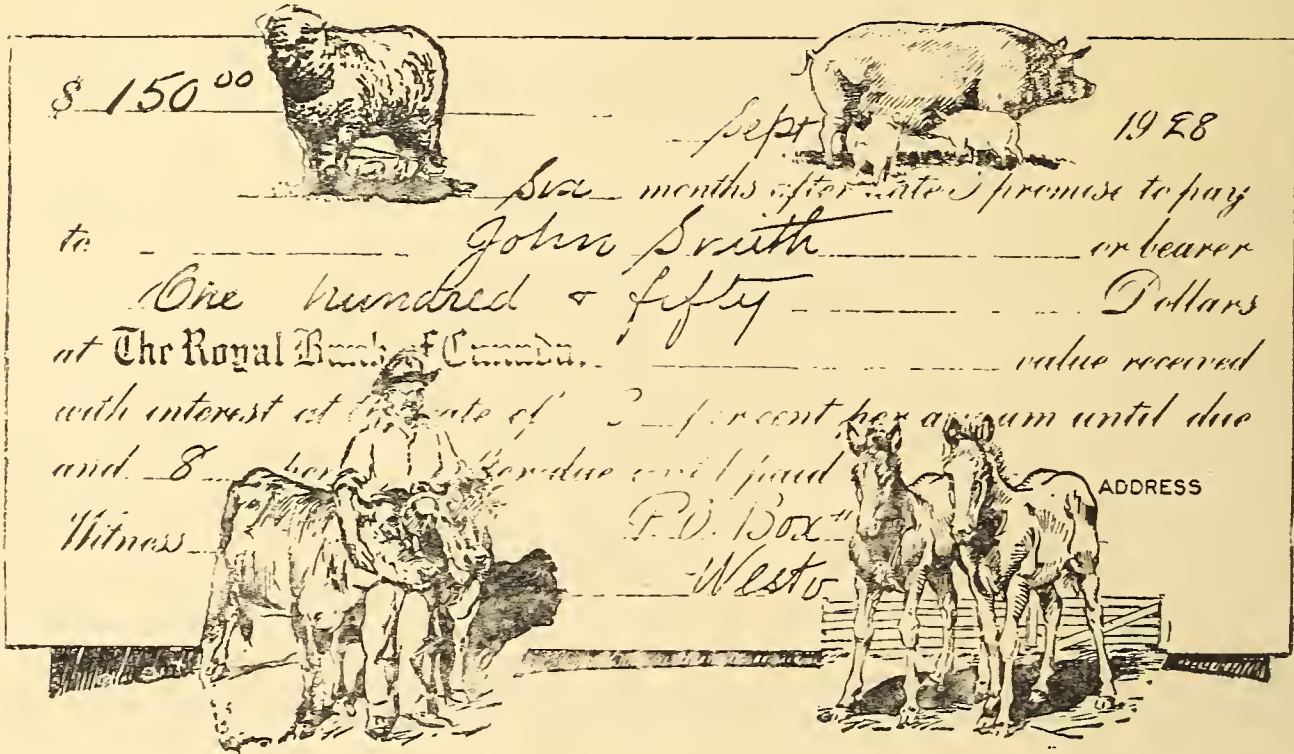 $ 150 00
Sept 1928
Six months after date I promise to pay
to John Smith or bearer
One hundred & fifty Dollars
at The Royal Bank of Canada. value received
with interest at rate of per cent per annum until due
and 8 due until paid
ADDRESS
Witness P.O. Box